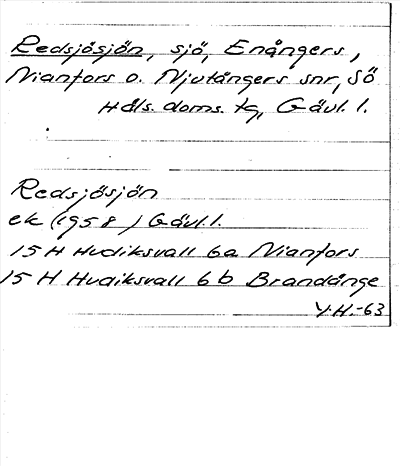 Redsjösjön, sjö, Enångers,
Nianfors o. Njutångers snr, SÖ
Häls. doms. tg, Gävl. l.
Redsjösjön
ek (1958) Gävl. l.
15 H Hudiksvall 6a Nianfors
15 H Hudiksvall 6 b Brandånge
Y.H.-63